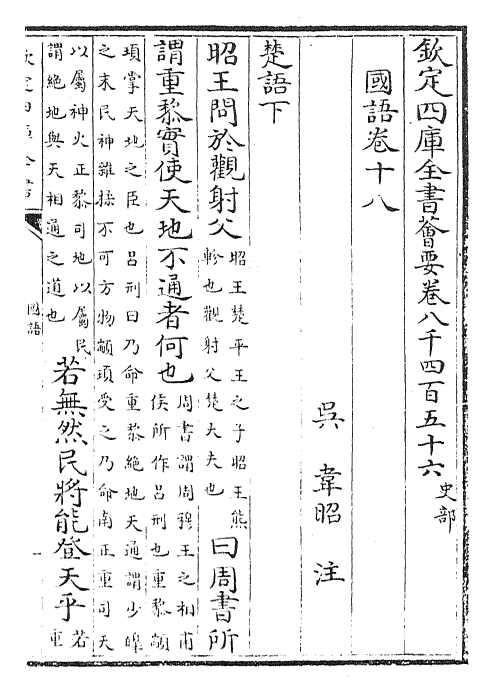 欽定四庫全書薈要卷八千四百五十六 史部
國語卷十八
吳 韋昭 注
楚語下
昭王問於觀射父昭王楚平王之子昭王熊軫也觀射父楚大夫也曰周書所
謂重黎實使天地不通者何也周書謂周穆王之相甫侯所作呂刑也重黎顓
頊掌天地之臣也呂刑曰乃命重黎絶地天通謂少皞
之末民神雜揉不可方物顓頊受之乃命南正重司天
以屬神火正黎司地以屬民
謂絶地與天相通之道也若無然民將能登天乎若重
國語
一